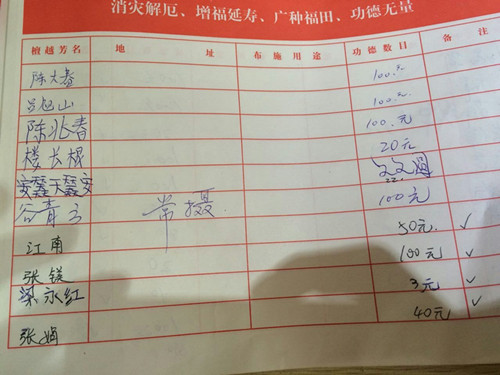 消灾解厄、增福延寿、广种福田、功德无量
檀越芳名 地 址 布施用途 功德数目 备注
陈大春 100.元
山 100.元
陈兆春 100.元
楼长根 20元
100元
谷青云 常摄
江南 50元 ✓
张镁 100元 ✓
梁永红 3元 ✓
张娟 40元 ✓